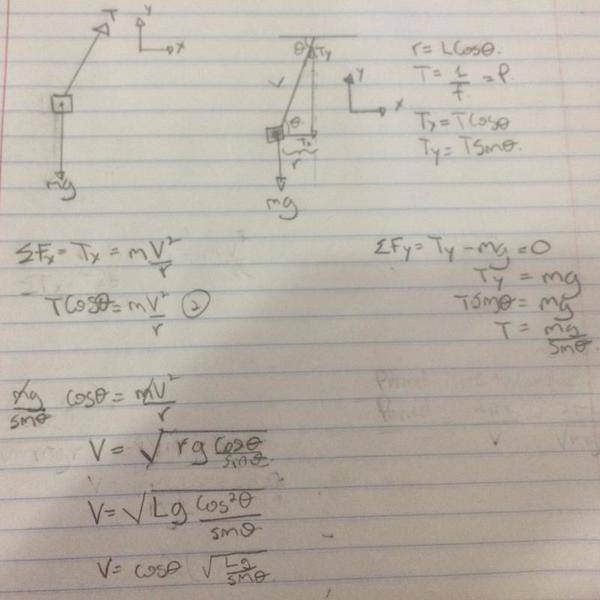 T
y
x
mg
θ
Ty
y
L
x
θ
Tx
r
mg
r = Lcosθ.
T = 1/f = P.
Tx = Tcosθ
Ty = Tsinθ.
ΣFx = Tx = mV²/r
Tcosθ = mV²/r ②
ΣFy = Ty - mg = 0
Ty = mg
Tsinθ = mg
T = mg/sinθ
mg/sinθ cosθ = mV²/r
V = √(rg cosθ/sinθ)
V = √(Lg cos²θ/sinθ)
V = cosθ √(Lg/sinθ)